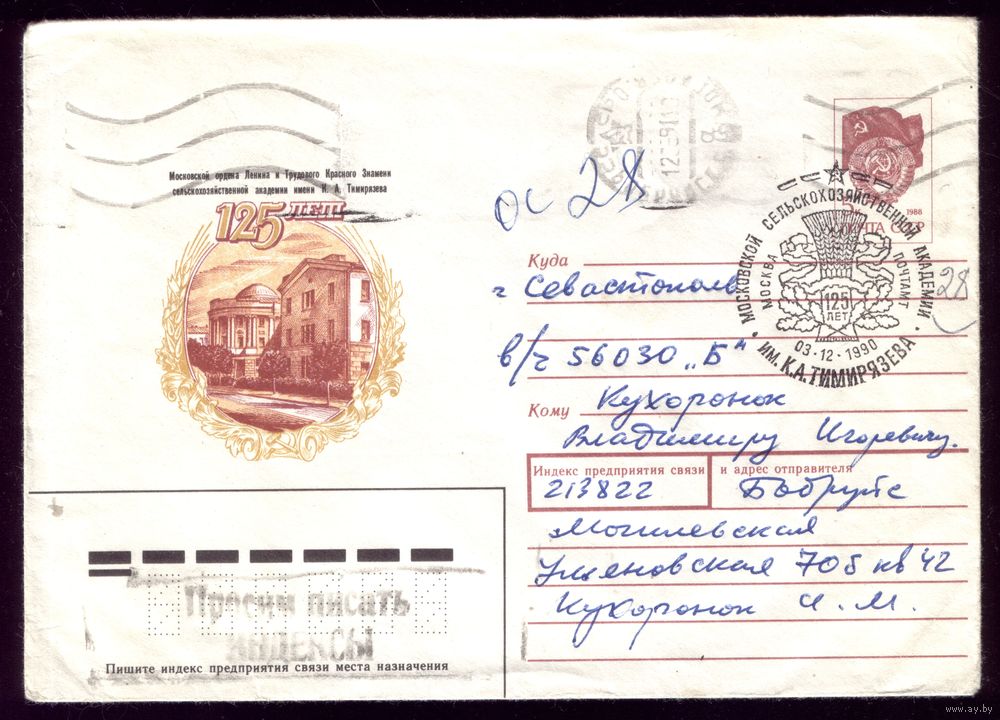 Московской ордена Ленина и Трудового Красного Знамени
сельскохозяйственной академии имени К. А. Тимирязева
125 лет
ос 28
1988
ПОЧТА СССР
МОСКОВСКОЙ СЕЛЬСКОХОЗЯЙСТВЕННОЙ АКАДЕМИИ
МОСКВА ПОЧТАМТ
125
ЛЕТ
03-12-1990
ИМ. К.А. ТИМИРЯЗЕВА
28
Куда
г Севастополь
в/ч 56030 „Б"
Кому Кухоронок
Владимиру Игоревичу.
Индекс предприятия связи и адрес отправителя
213822 Бобруйск
Могилевская
Ульяновская 70б кв 42
Кухоронок И. М.
Просим писать
ИНДЕКСЫ
Пишите индекс предприятия связи места назначения
www.ay.by